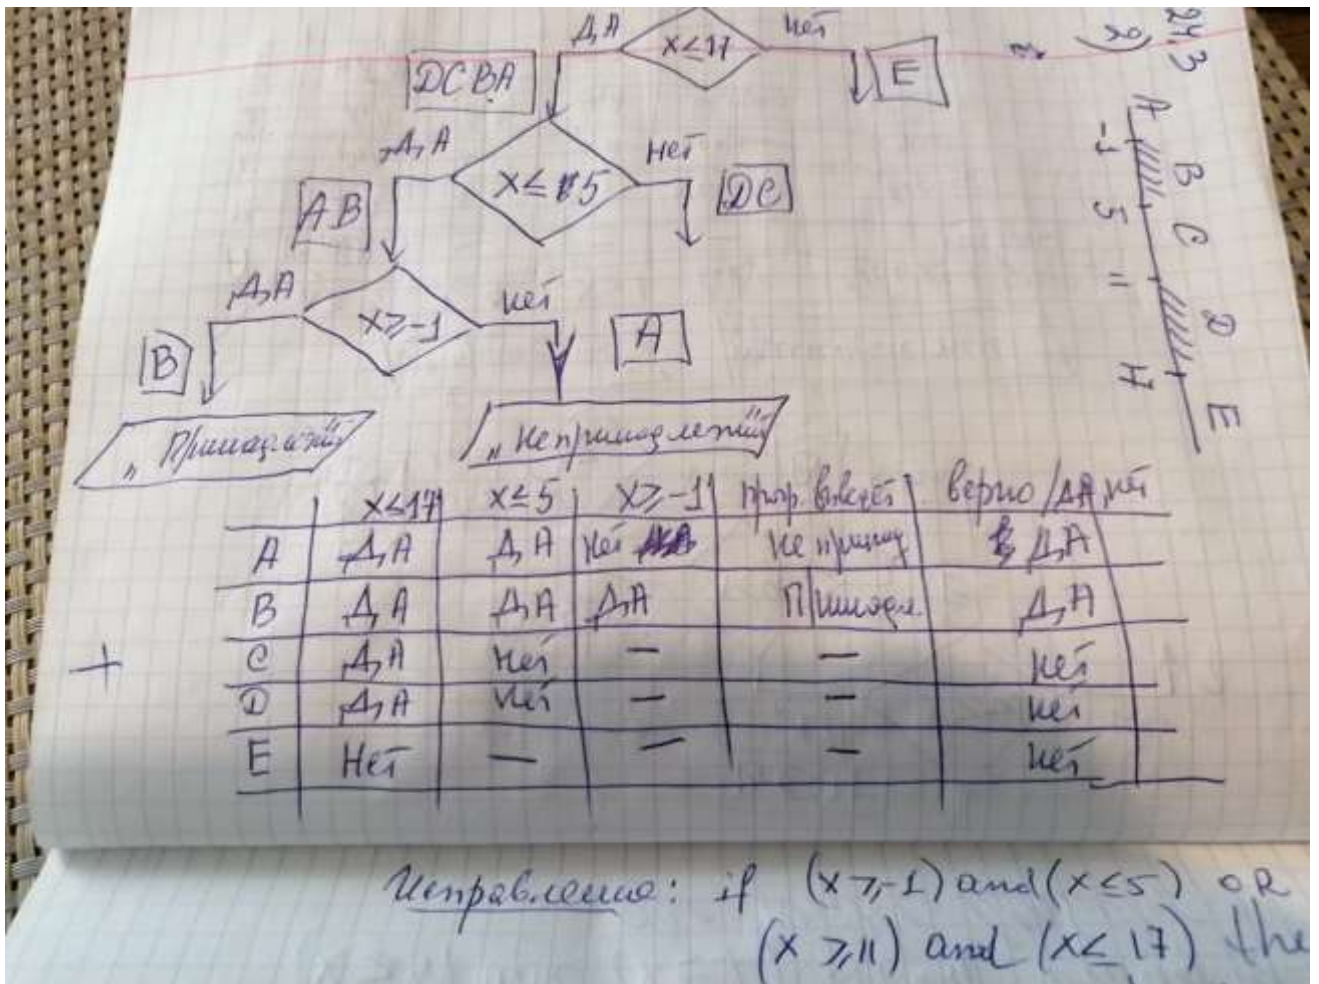 ДА x≤17 нет
DCBA E
ДА x≤5 нет
AB DC
ДА x≥-1 нет
B A
„Принадлежит" „Не принадлежит"
x≤17 x≤5 x≥-1 прогр. выведет верно/ДА, нет
A ДА ДА нет не принад ДА
B ДА ДА ДА Принадл. ДА
C ДА нет — — нет
D ДА нет — — нет
E Нет — — — нет
+
24.3
2)
A B C D E
-1 5 11 17
Исправление: if (x≥-1) and (x≤5) OR
(x≥11) and (x≤17) the